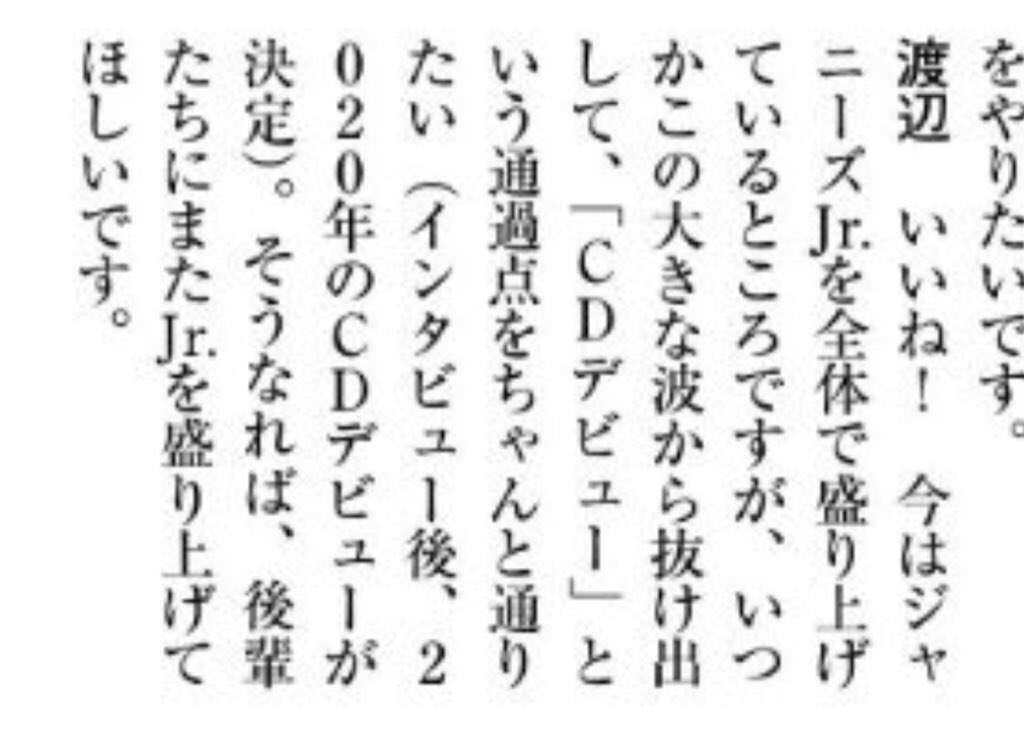 をやりたいです。
渡辺　いいね！　今はジャ
ニーズJr.を全体で盛り上げ
ているところですが、いつ
かこの大きな波から抜け出
して、「CDデビュー」と
いう通過点をちゃんと通り
たい（インタビュー後、2
020年のCDデビューが
決定）。そうなれば、後輩
たちにまたJr.を盛り上げて
ほしいです。